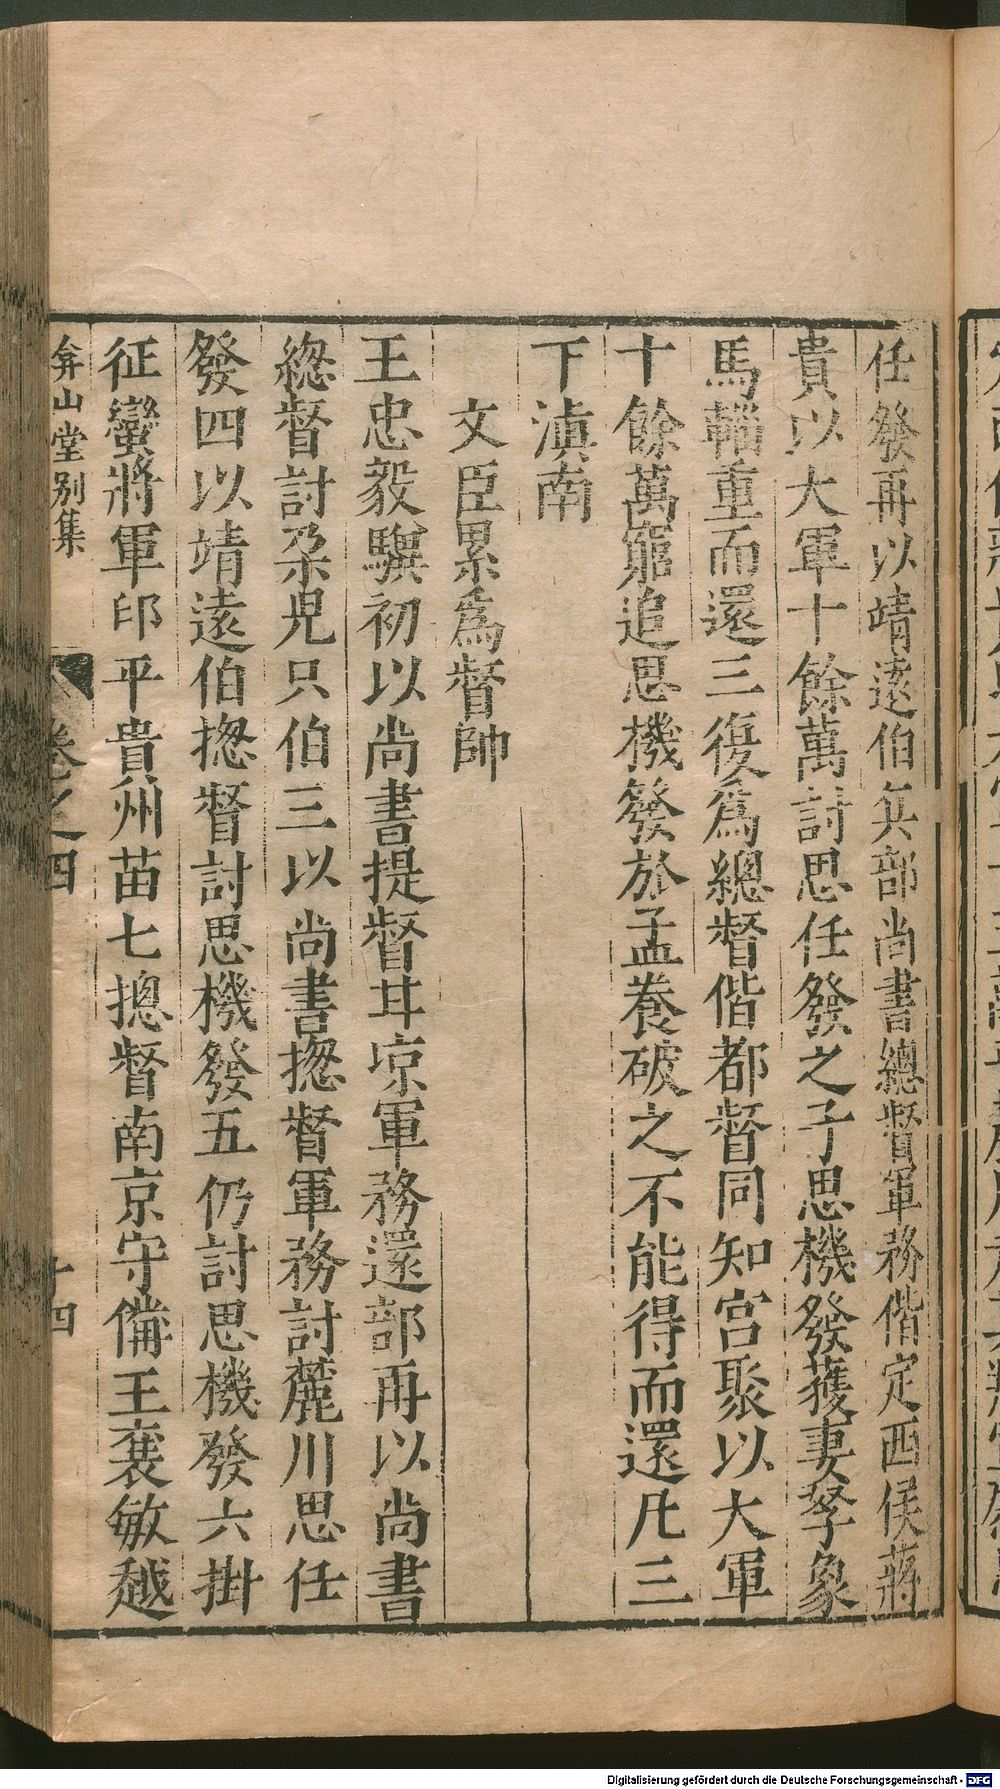 任發再以靖遠伯兵部尚書總督軍務偕定西侯蔣
貴以大軍十餘萬討思任發之子思機發獲妻孥象
馬輜重而還三復爲總督偕都督同知宫聚以大軍
十餘萬窮追思機發於孟養破之不能得而還凡三
下滇南
文臣累爲督帥
王忠毅驥初以尚書提督甘凉軍務還部再以尚書
總督討朶児只伯三以尚書揔督軍務討麓川思任
發四以靖遠伯揔督討思機發五仍討思機發六掛
征蠻將軍印平貴州苗七摠督南京守備王襄敏越
弇山堂别集
卷之四
十四
Digitalisierung gefördert durch die Deutsche Forschungsgemeinschaft - DFG